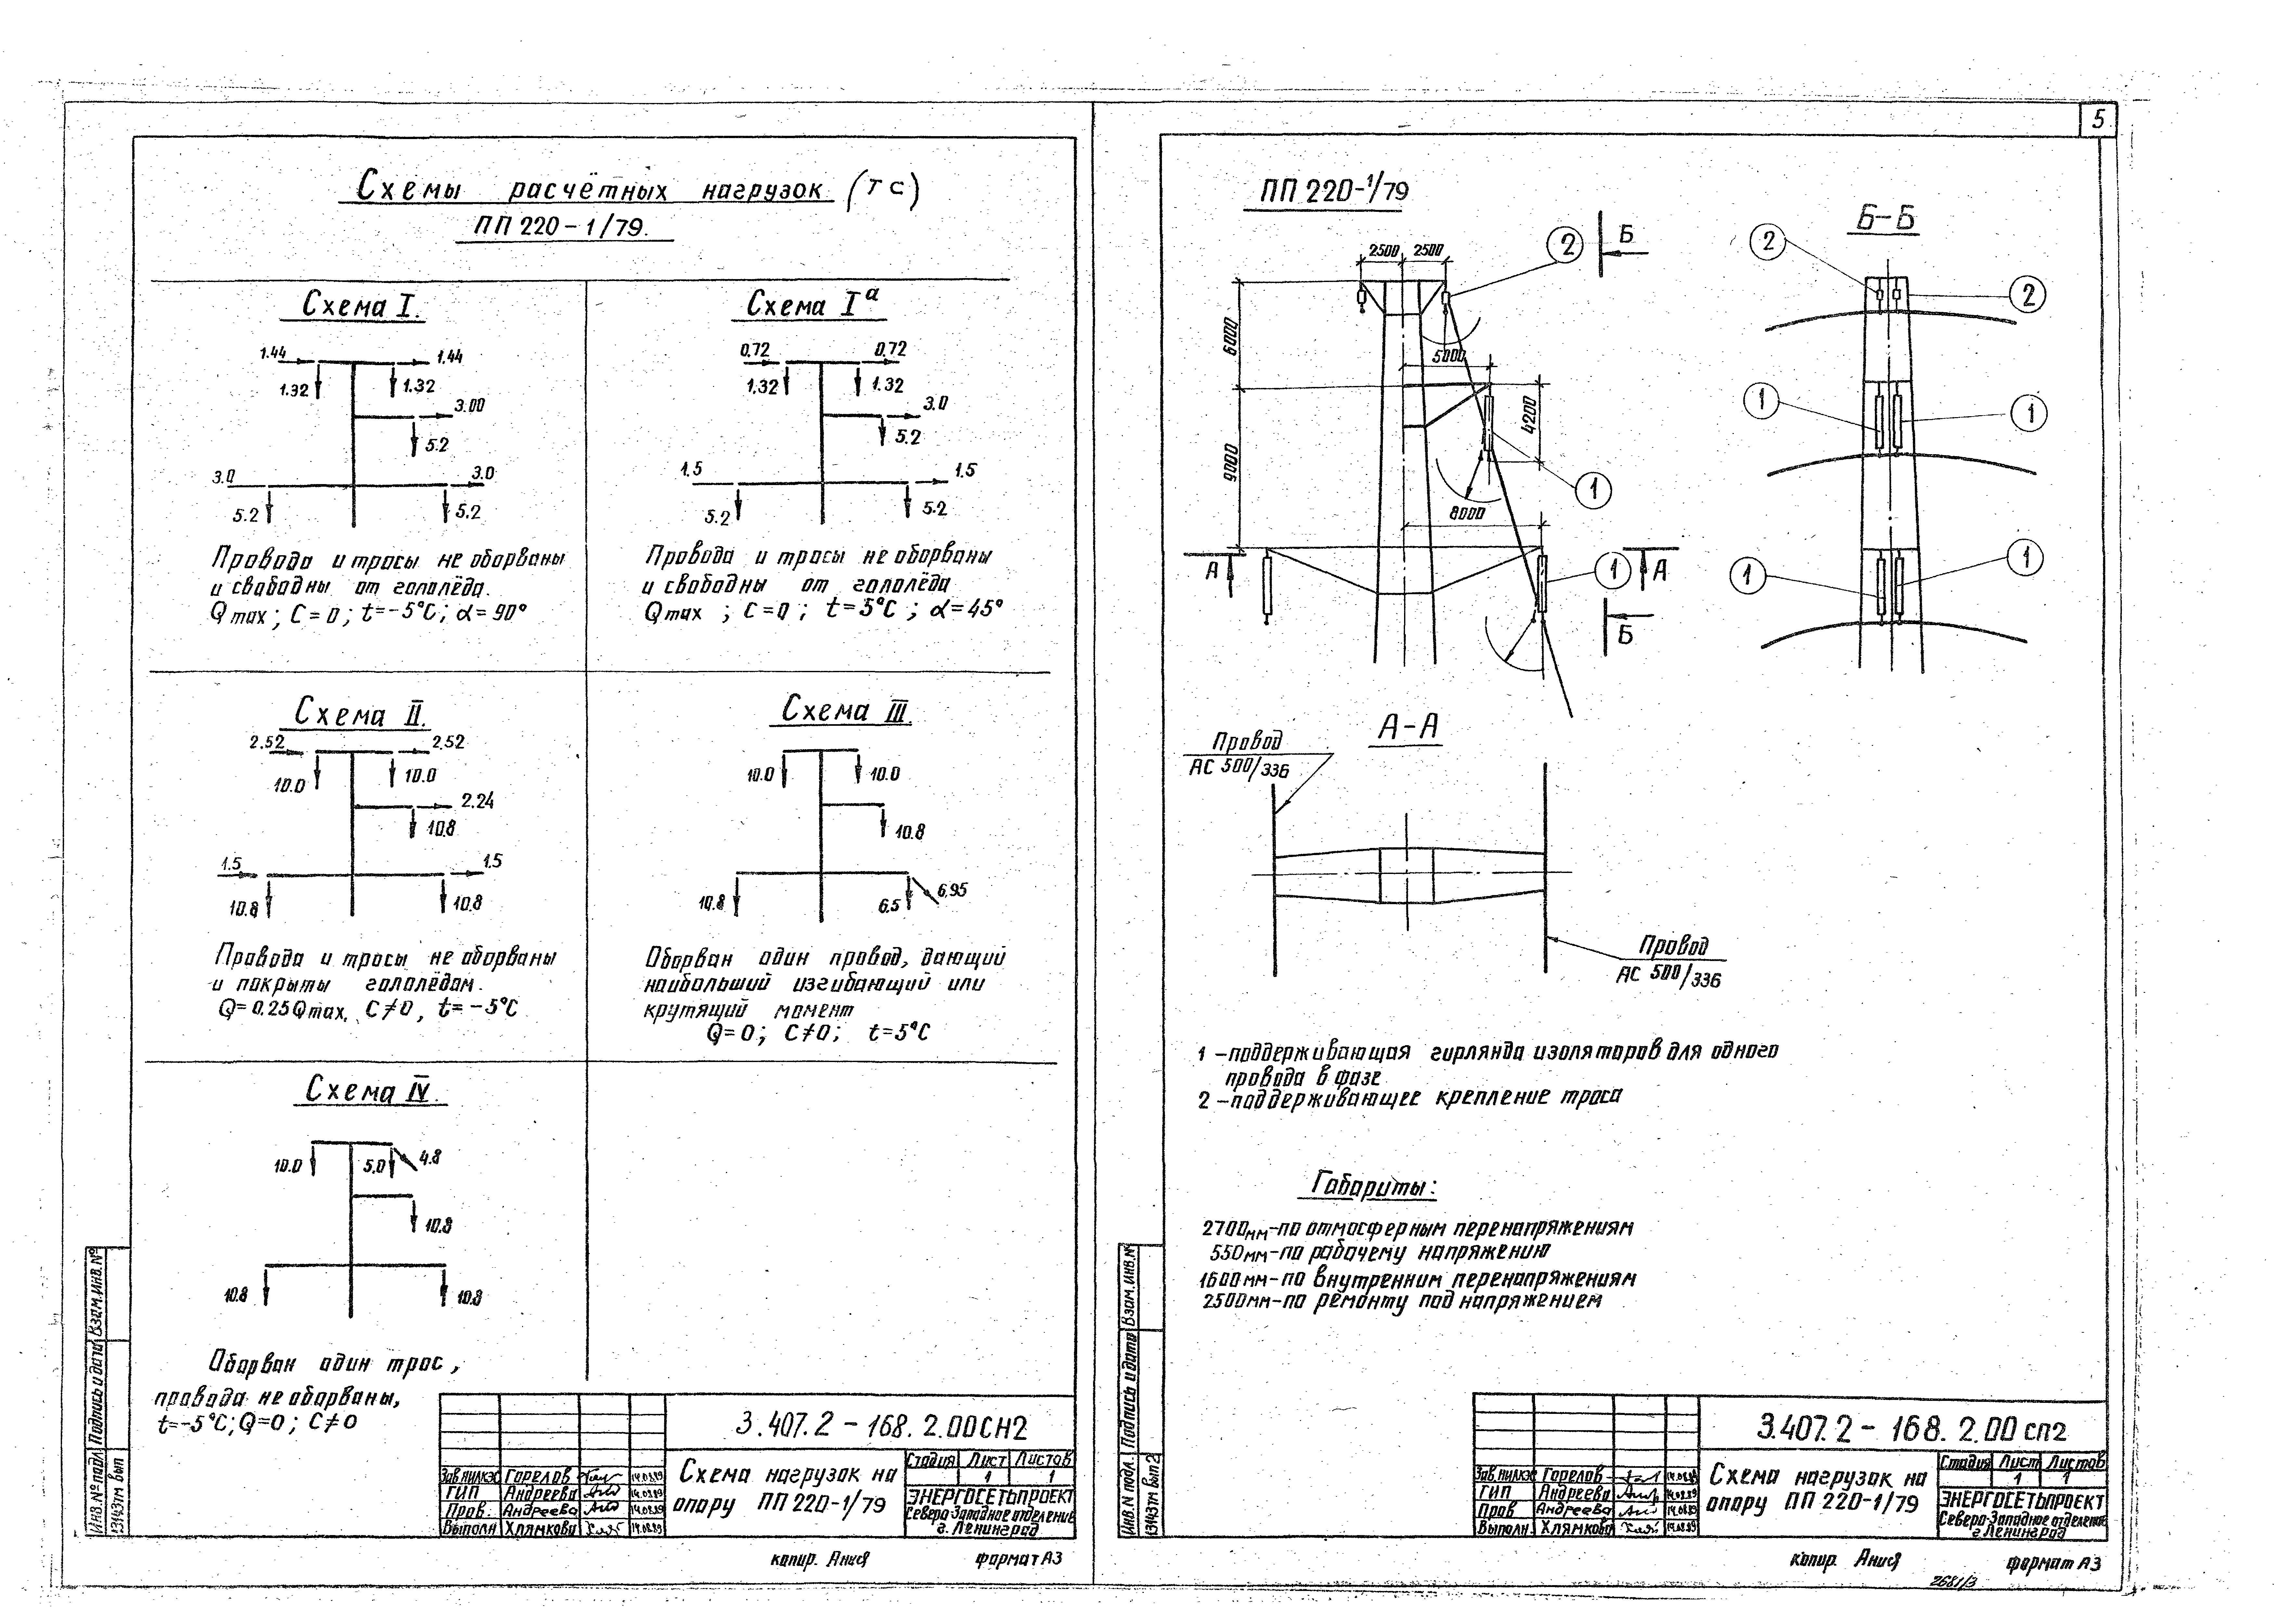 5
Схемы расчётных нагрузок (тс)
ПП 220-1/79.
Схема I.
1.44
1.44
1.32
1.32
3.00
5.2
3.0
3.0
5.2
5.2
Провода и тросы не оборваны
и свободны от гололёда.
Q max; C=0; t=-5°C; α=90°
Схема I а
0.72
0.72
1.32
1.32
3.0
5.2
1.5
1.5
5.2
5.2
Провода и тросы не оборваны
и свободны от гололёда
Q max ; C=0 ; t=5°C ; α=45°
Схема II.
2.52
2.52
10.0
10.0
2.24
10.8
1.5
1.5
10.8
10.8
Провода и тросы не оборваны
и покрыты гололёдом.
Q=0.25Q max, C≠0, t=-5°C
Схема III.
10.0
10.0
10.8
10.8
6.5
6.95
Оборван один провод, дающий
наибольший изгибающий или
крутящий момент
Q=0; C≠0; t=5°C
Схема IV.
10.0
5.0
4.8
10.8
10.8
10.8
Оборван один трос,
провода не оборваны,
t=-5°C; Q=0; C≠0
3.407.2-168.2.00СН2
Схема нагрузок на
опору ПП 220-1/79
Стадия Лист Листов
1 1
Зав.НИЛКЭС Горелов 14.08.89
ГИП Андреева 14.08.89
Пров. Андреева 14.08.89
Выполн Хлямкова 14.08.89
ЭНЕРГОСЕТЬПРОЕКТ
Северо-Западное отделение
г. Ленинград
копир. Анися
формат А3
Инв.№ подл. Подпись и дата Взам.инв.№
13143тм вып
ПП 220-1/79
2500 2500
2
Б
6000
5000
4200
9000
1
8000
А
1
А
Б
Б-Б
2
2
1
1
1
1
А-А
Провод
АС 500/336
Провод
АС 500/336
1 -поддерживающая гирлянда изоляторов для одного
провода в фазе
2 -поддерживающее крепление троса
Габариты:
2700мм-по атмосферным перенапряжениям
550мм-по рабочему напряжению
1600мм-по внутренним перенапряжениям
2500мм-по ремонту под напряжением
3.407.2-168.2.00 сп2
Схема нагрузок на
опору ПП 220-1/79
Стадия Лист Листов
1 1
Зав.НИЛКЭС Горелов 14.08.89
ГИП Андреева 14.08.89
Пров Андреева 14.08.89
Выполн. Хлямкова 14.08.89
ЭНЕРГОСЕТЬПРОЕКТ
Северо-Западное отделение
г. Ленинград
копир. Анися
формат А3
2681/3
Инв.№ подл. Подпись и дата Взам.инв.№
13143тм вып2